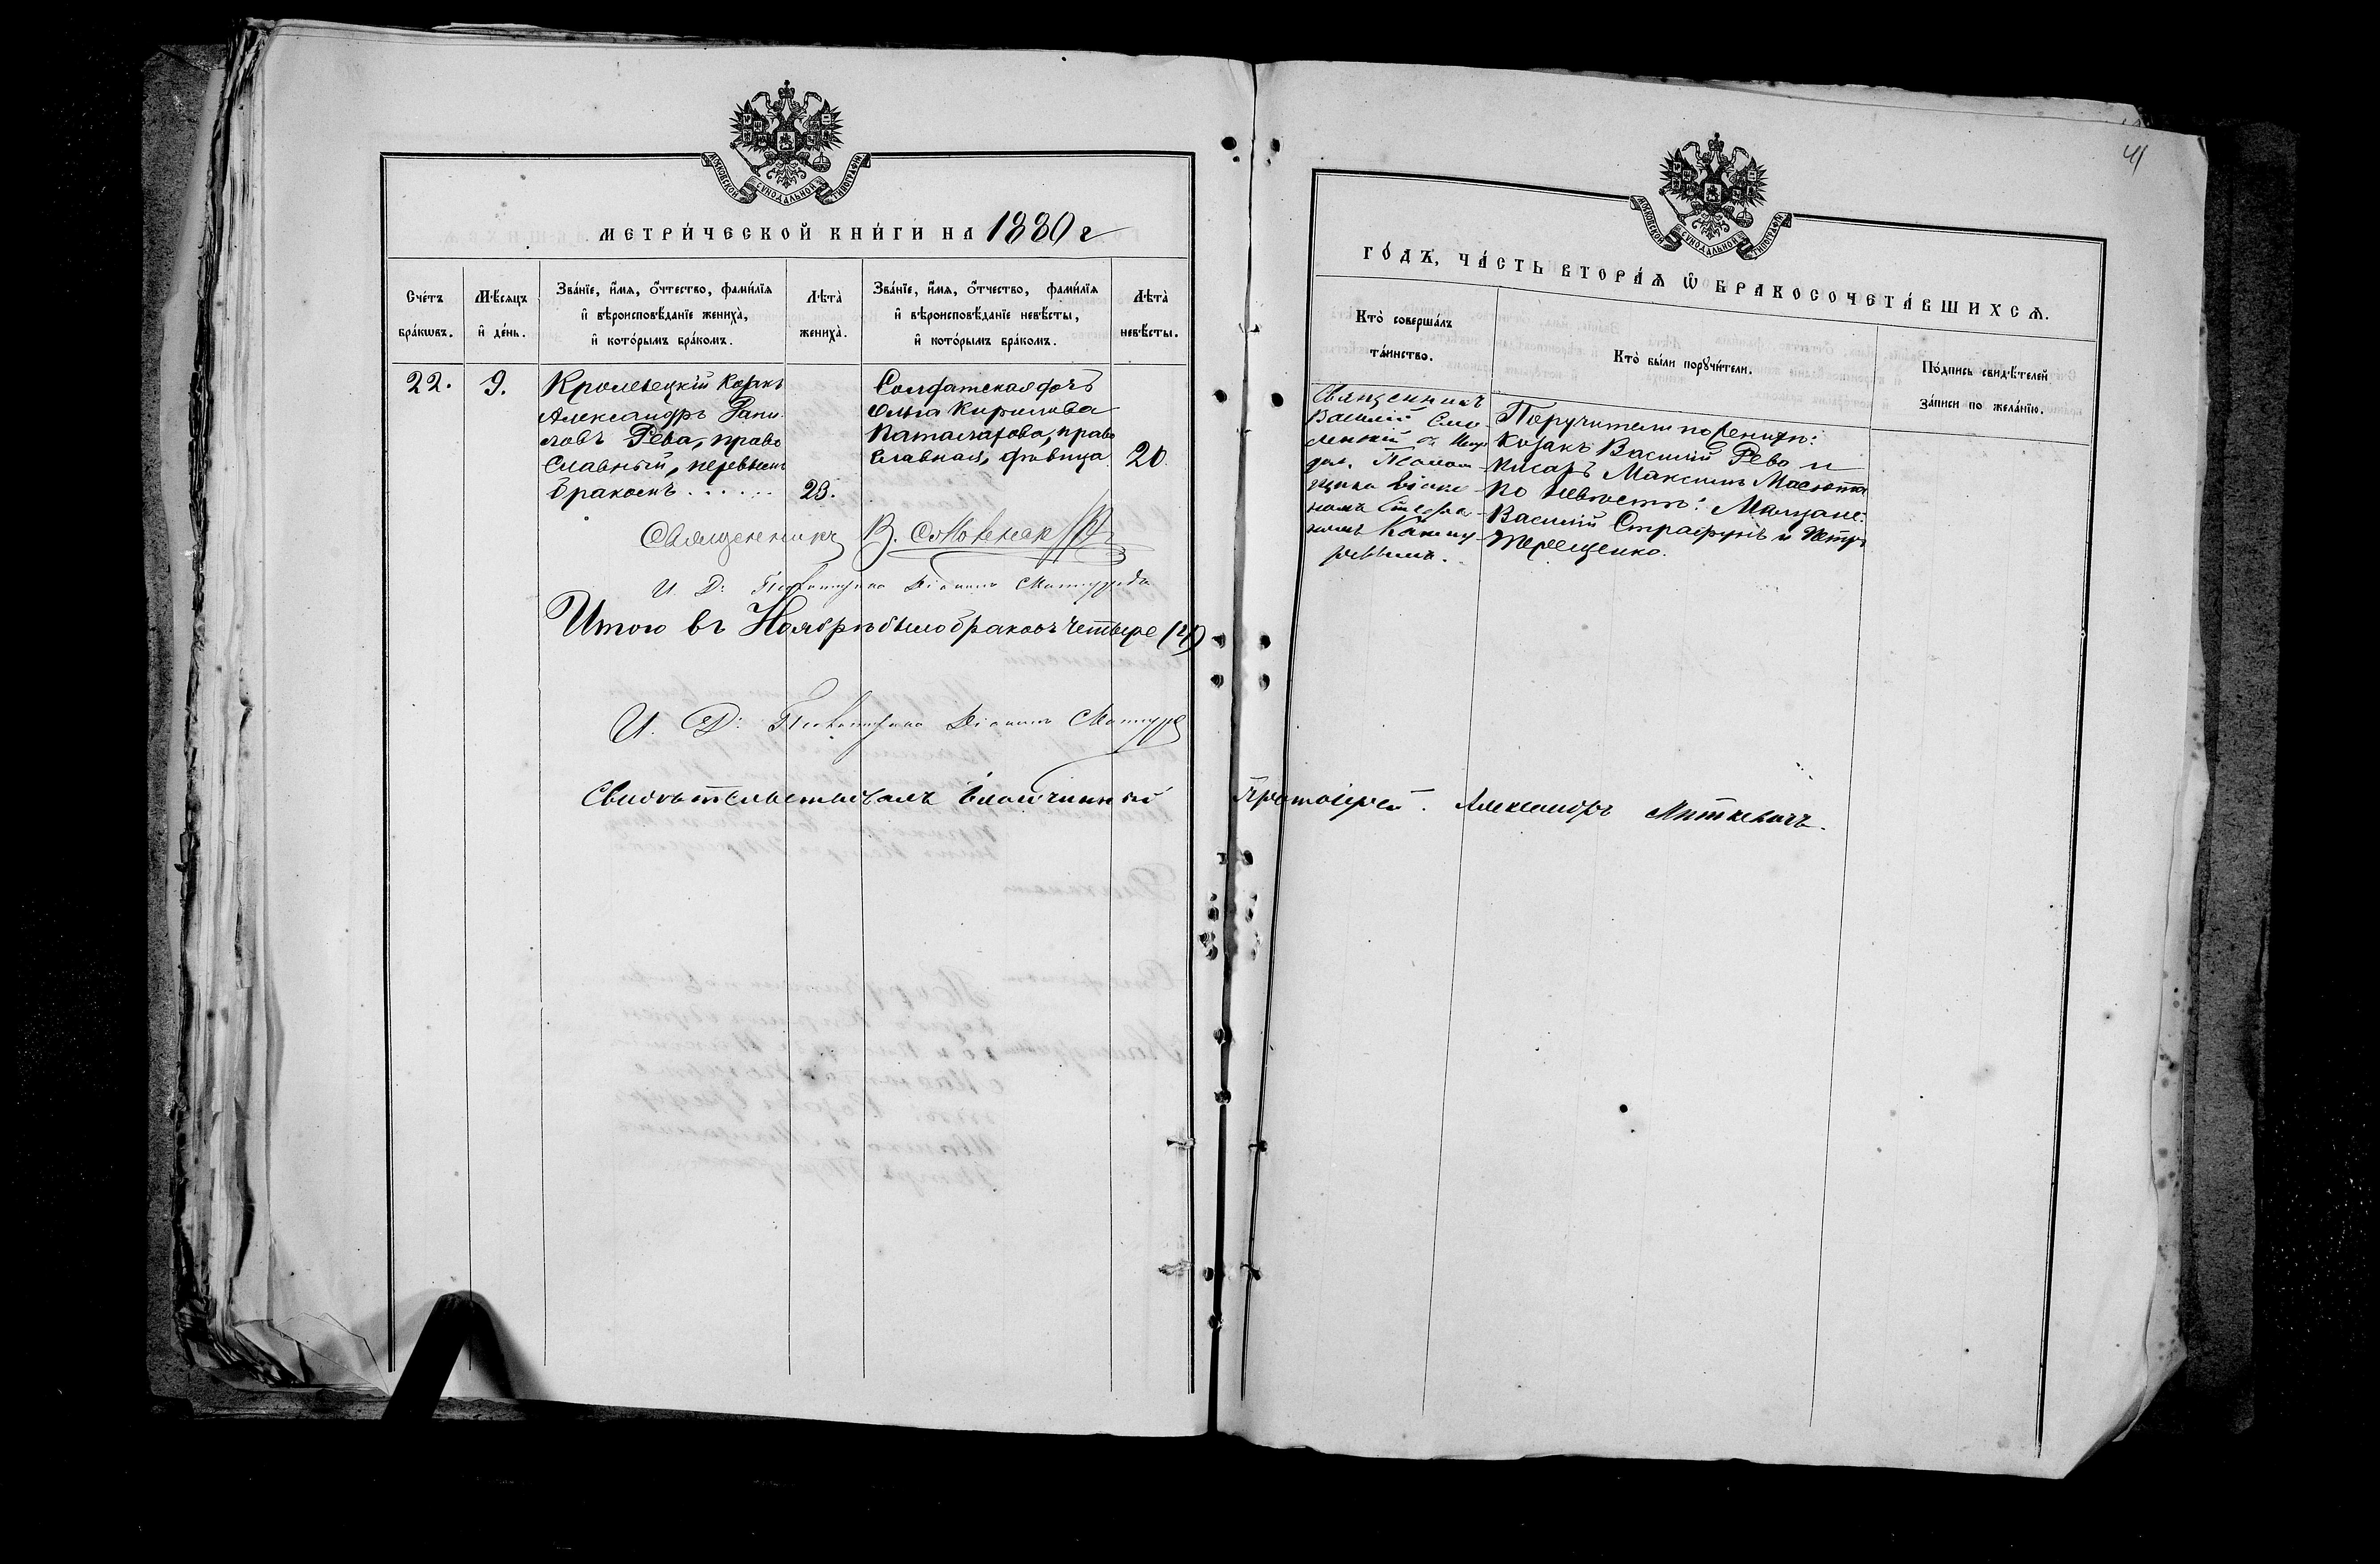 МОСКОВСКОЙ СУНОДАЛЬНОЙ ТИПОГРАФІИ
МЕТРИ́ЧЕСКОЙ КНИ́ГИ НА 1880 г
Сче́тъ бра́кωвъ.
Мѣ́сяцъ и҆ де́нь.
Зва́нїе, и҆́мѧ, ѻ҆́тчество, фами́лїѧ
и҆ вѣроисповѣ́данїе жениха̀,
и҆ кото́рымъ бра́комъ.
Лѣта̀ жениха̀.
Зва́нїе, и҆́мѧ, ѻ҆́тчество, фами́лїѧ
и҆ вѣроисповѣ́данїе невѣ́сты,
и҆ кото́рымъ бра́комъ.
Лѣта̀ невѣ́сты.
22.
9.
Кролевецкій Козакъ
Александръ
Рева, право
славный, первымъ
бракомъ . . . . . .
23.
Солдатская дочь
Ольга Кирилова
право
славная, девица
20.
Священникъ В.
И. Д. Псаломщика Діаконъ
Итого въ Ноябрѣ было браковъ четыре (4)
И. Д. Псаломщика Діаконъ
Свидѣтельствовалъ Благочинный Протоіерей Александръ Миткевичъ.
41
МОСКОВСКОЙ СУНОДАЛЬНОЙ ТИПОГРАФІИ
ГО́ДЪ, ЧА́СТЬ ВТОРА́Ѧ Ѡ҆ БРАКОСОЧЕТА́ВШИХСѦ.
Кто̀ соверша́лъ
та́инство.
Кто̀ бы́ли порꙋчи́тели.
По́дпись свидѣ́телей
за́писи по жела́нїю.
Священникъ
Василій Смо
ленскій съ
Псалом
щика Діако
номъ Стефа
номъ
Поручители по женихѣ:
Козакъ Василій Рева и
писарь Максимъ Масюта
по невѣстѣ: Мещане:
Василій Страфунъ и Петръ
Терещенко.